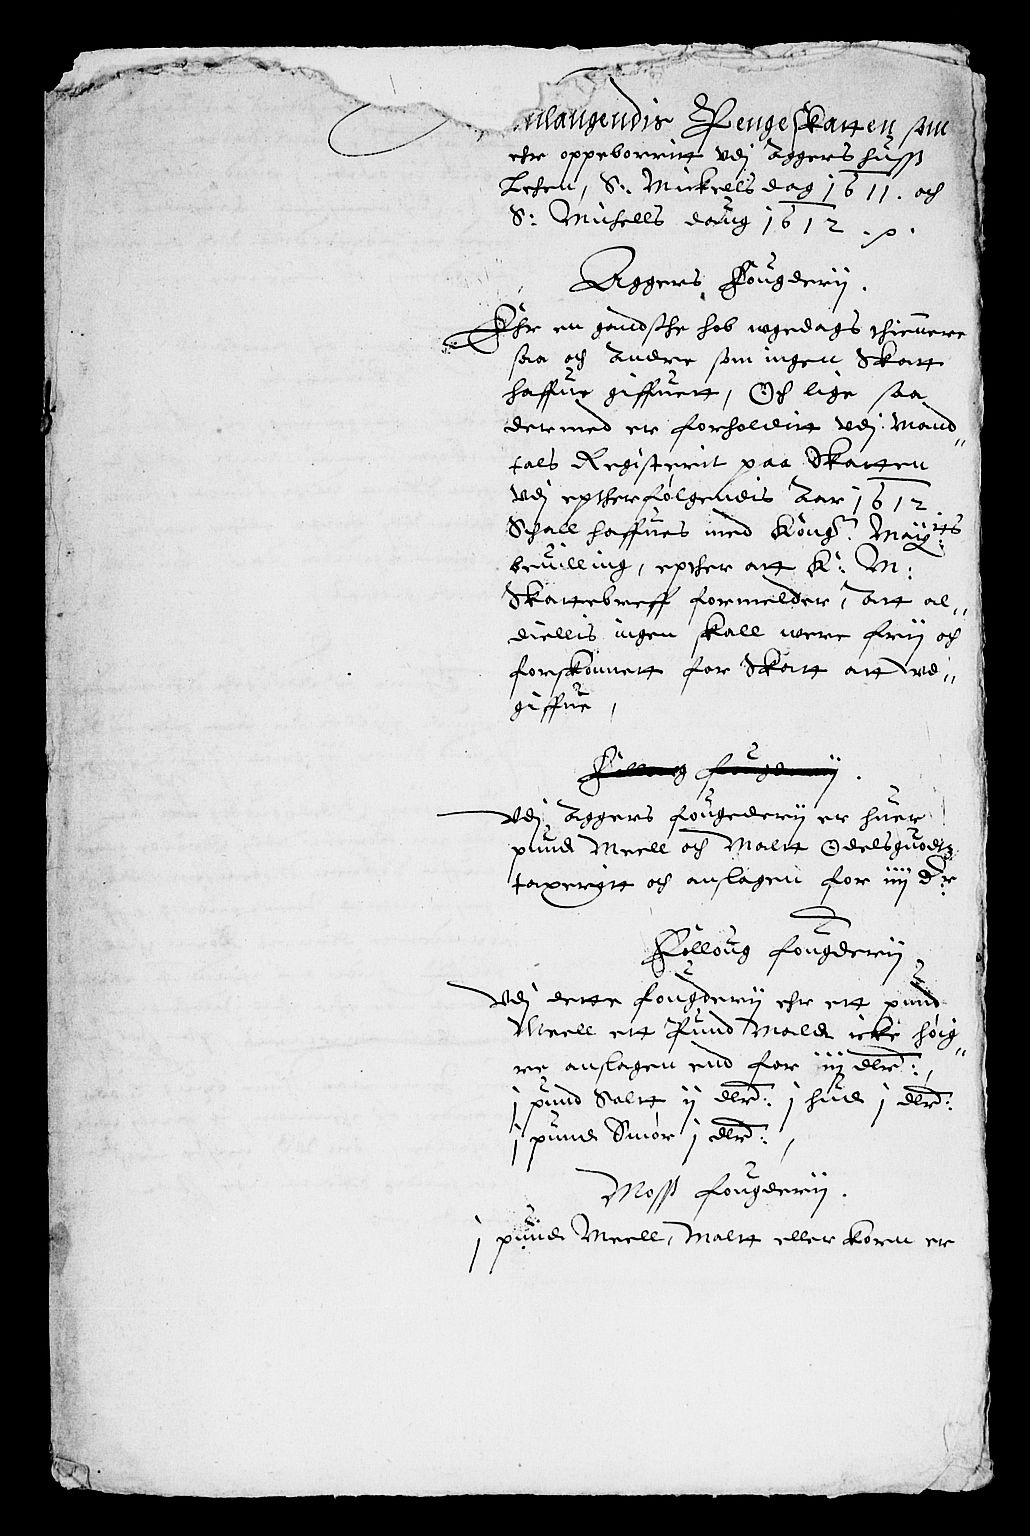 anlangendis Pengeskatten som
ehr oppeborritt vdj Aggershuss
Lehen, S: Mickells dag 1611. och
S: Michells daug 1612
Aggers Fougderij.
Ehr en gandsche hob wgedags thiennere
saa och Andre som ingen Skatt
haffue giffuett, Och lige saa
dermed er forholditt vdj Mand„
tals Registerit paa Skatten
vdj eptherfølgendis Aar 1612
Schall haffues med Kong: May:tts
beuilling, epther att K: M:
Skattebreff formelder, Att al„
diellis ingen skall were frij och
forskonnett for Skatt att vd„
giffue,
Folloug fougderij.
Vdj Aggers fougederij er huer
pund Meell och Malt Odelsguodtz
taxeritt och anslagen for iiij dr
Folloug fougderij
Vdj dette fougderij ehr ett pund
Meell ett Pund Malt icke høig„
re anslagen end for iij dlr:,
j pund Salt ij dlr: j hud j dlr:
j pund Smør j dlr:,
Moss fougderij.
j pund Meell, Malt eller korn er